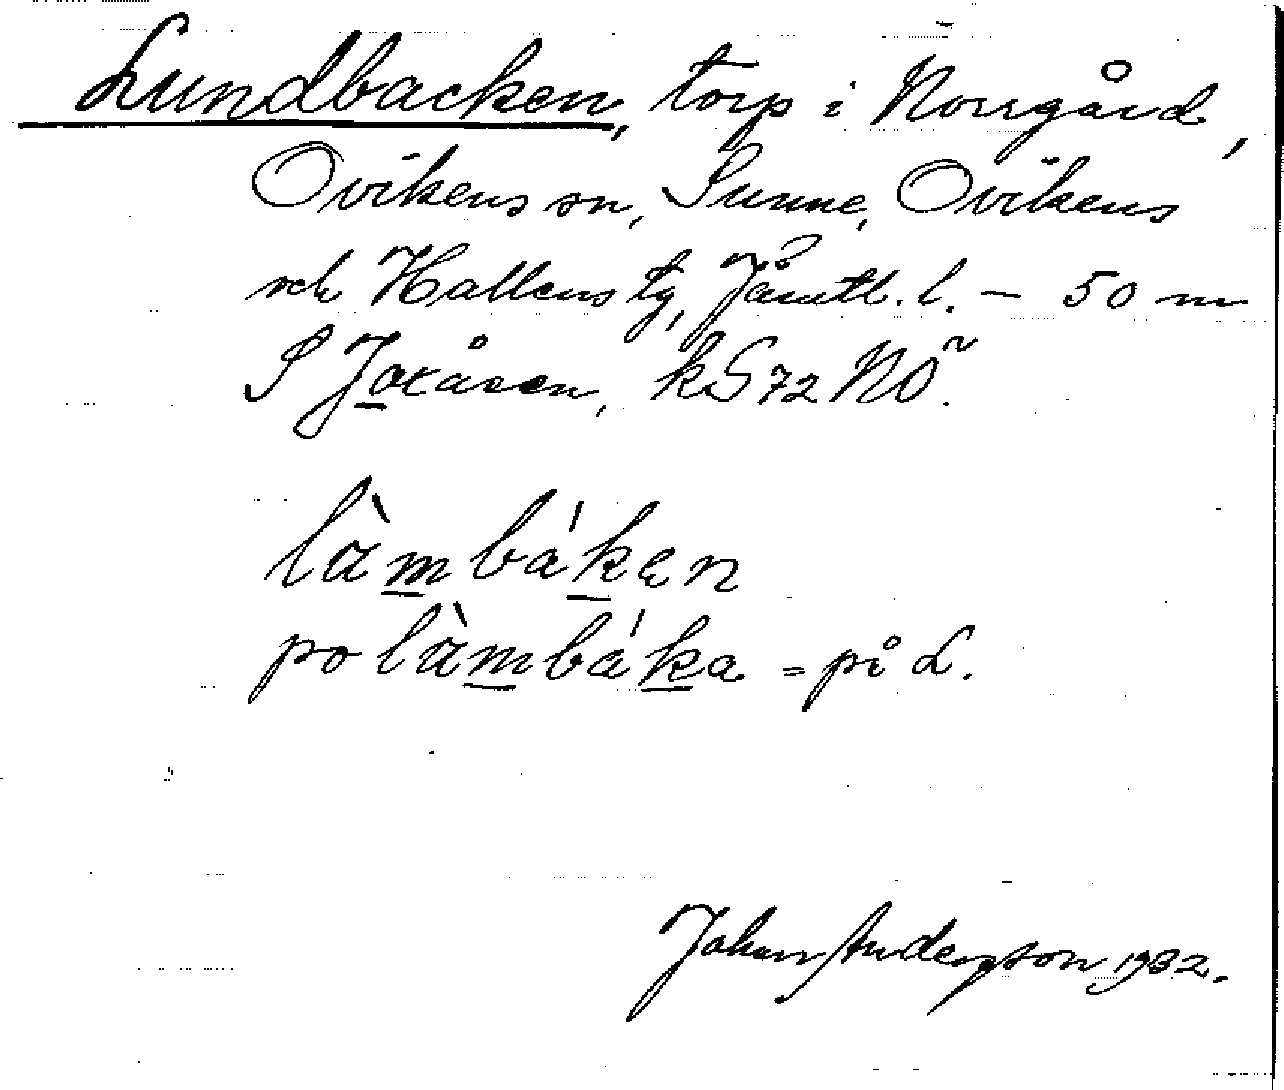 Lundbacken, torp i Norrgård,
Ovikens sn, Sunne, Ovikens
och Hallens tg, Jämtl. l. – 50 m
S Joxåsen, kS 72 NO~.
làmbákęn
po làmbáka = på L.
Johan Anderson 1932.